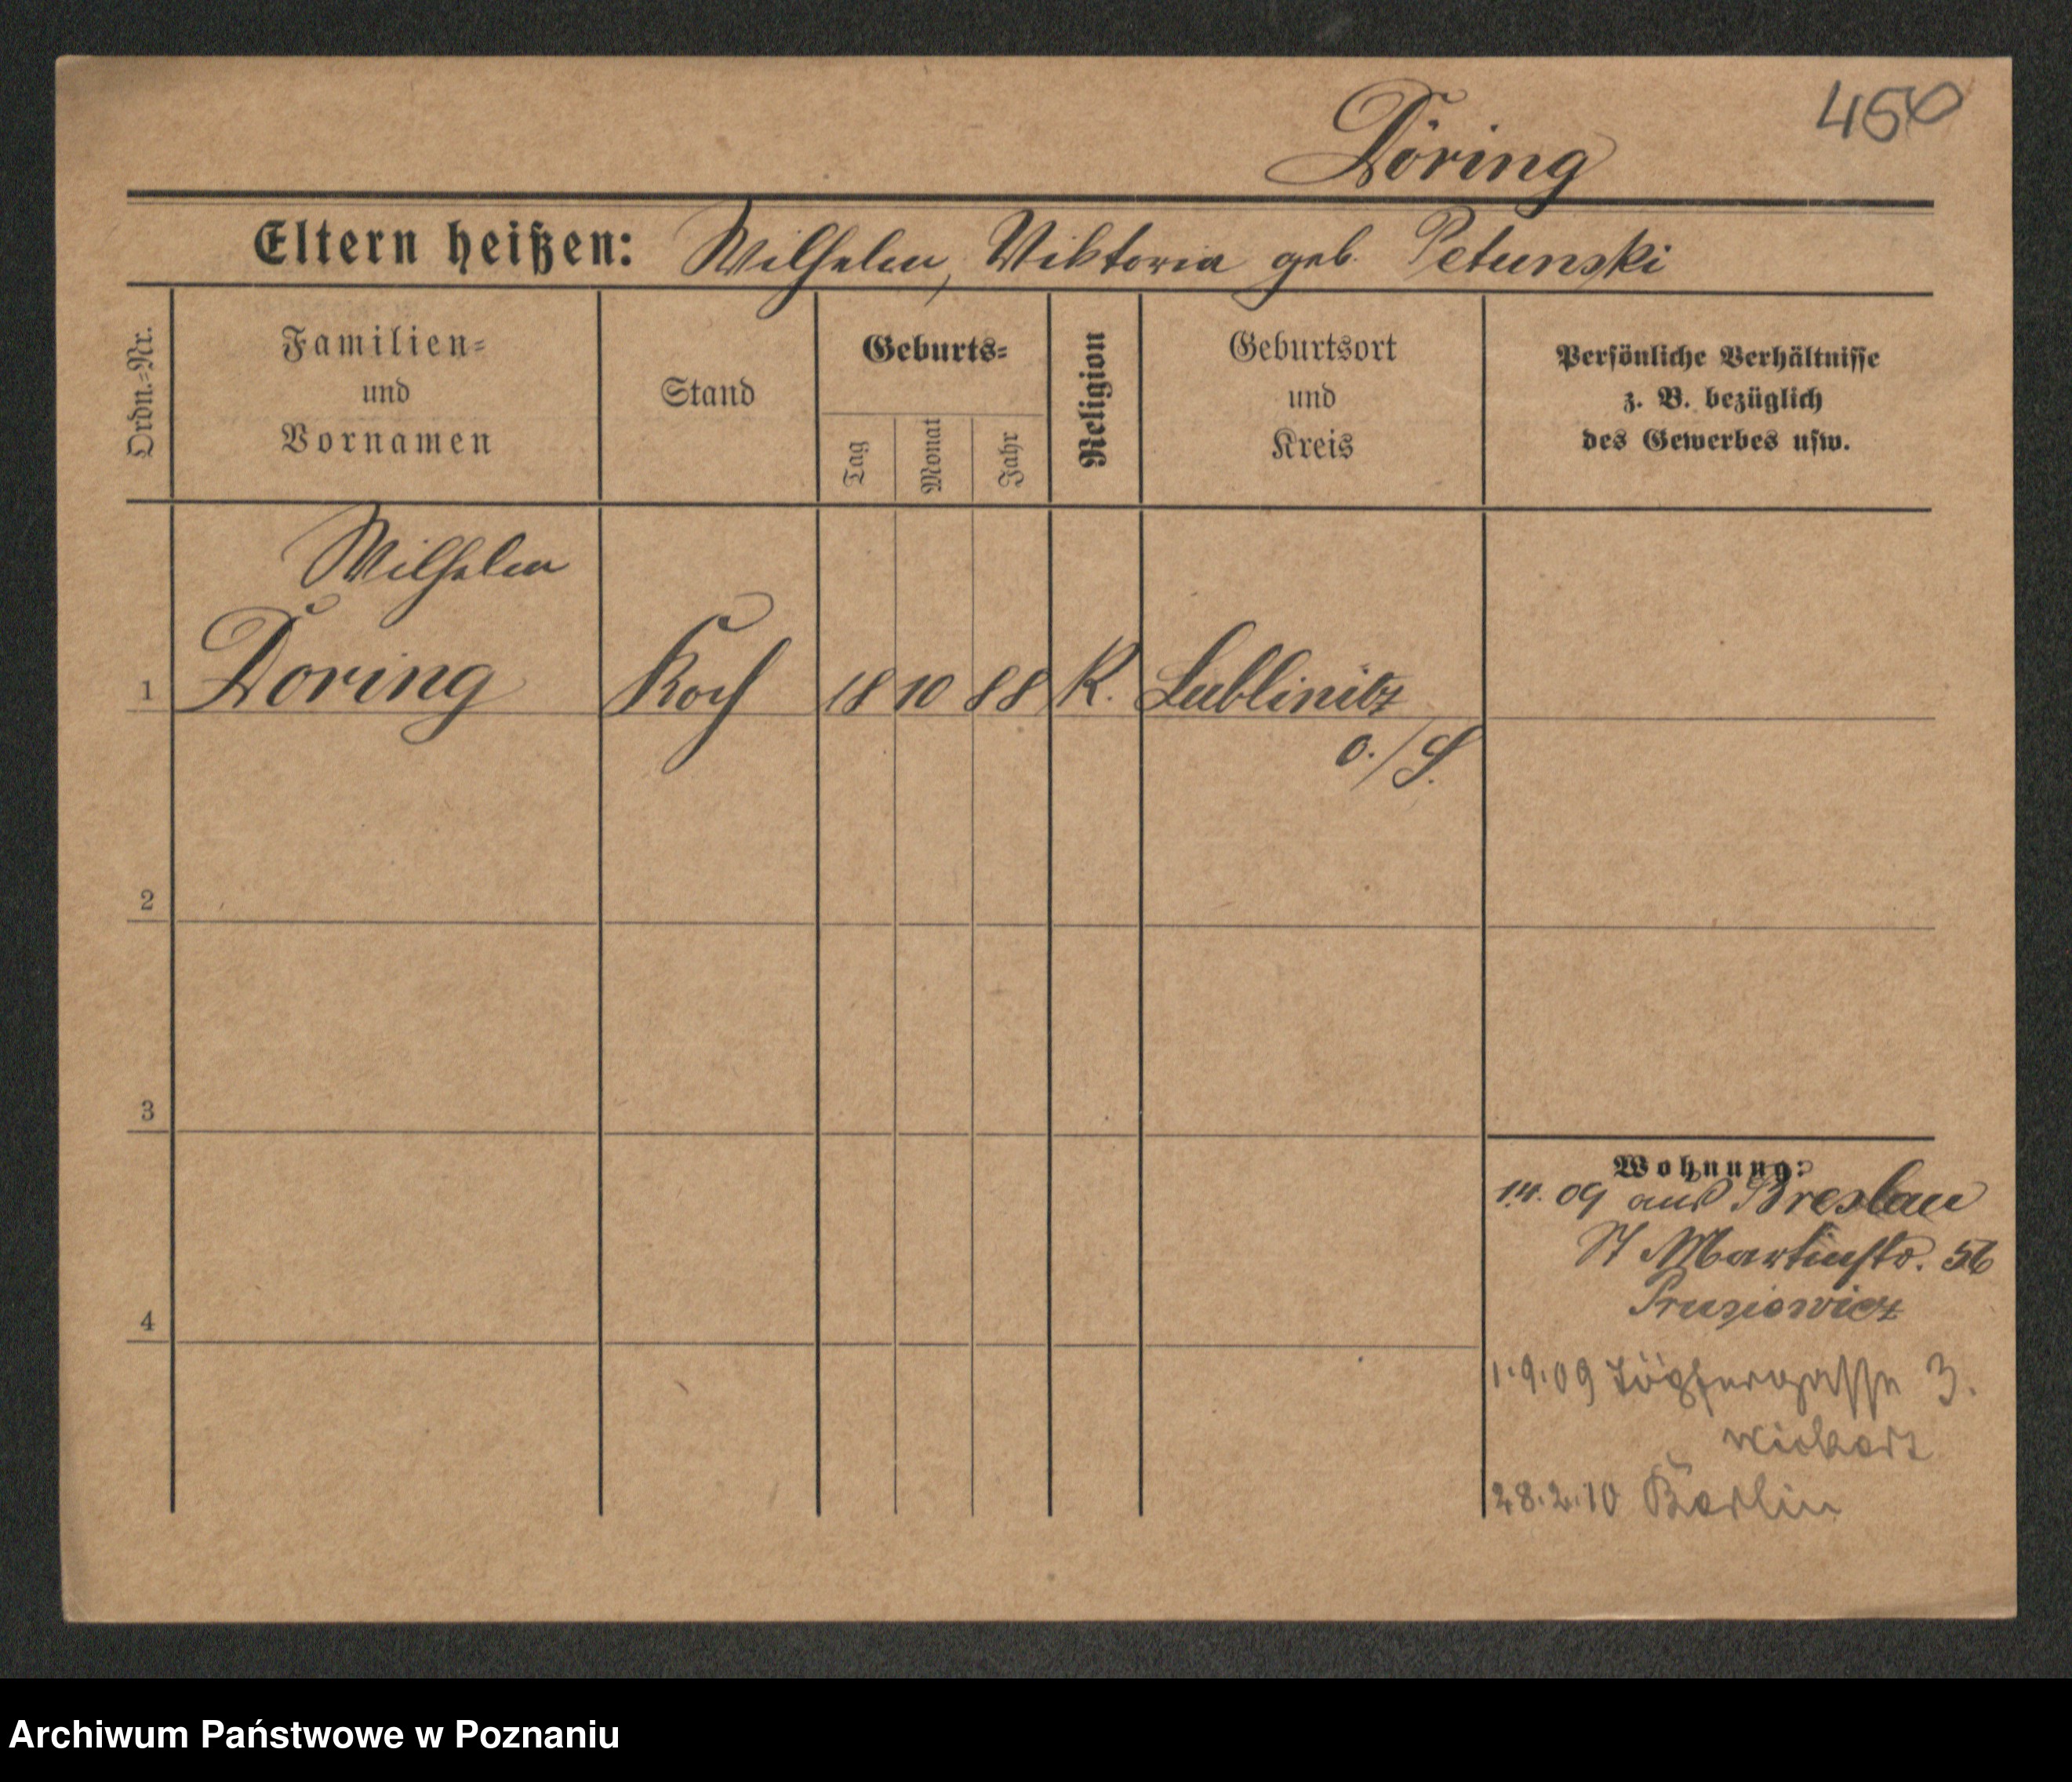 450
Döring
Eltern heißen: Wilhelm, Viktoria geb. Petunski
Ordn.-Nr.
Familien-
und
Vornamen
Stand
Geburts-
Tag
Monat
Jahr
Religion
Geburtsort
und
Kreis
Persönliche Verhältnisse
z. B. bezüglich
des Gewerbes usw.
Wilhelm
1 Döring Koch 18 10 88 K. Lublinitz
O./S.
2
3
4
Wohnung:
09 aus Breslau
St Martinstr. 56
1.9.09 Töpfergasse 3.
28.2.10 Berlin
Archiwum Państwowe w Poznaniu